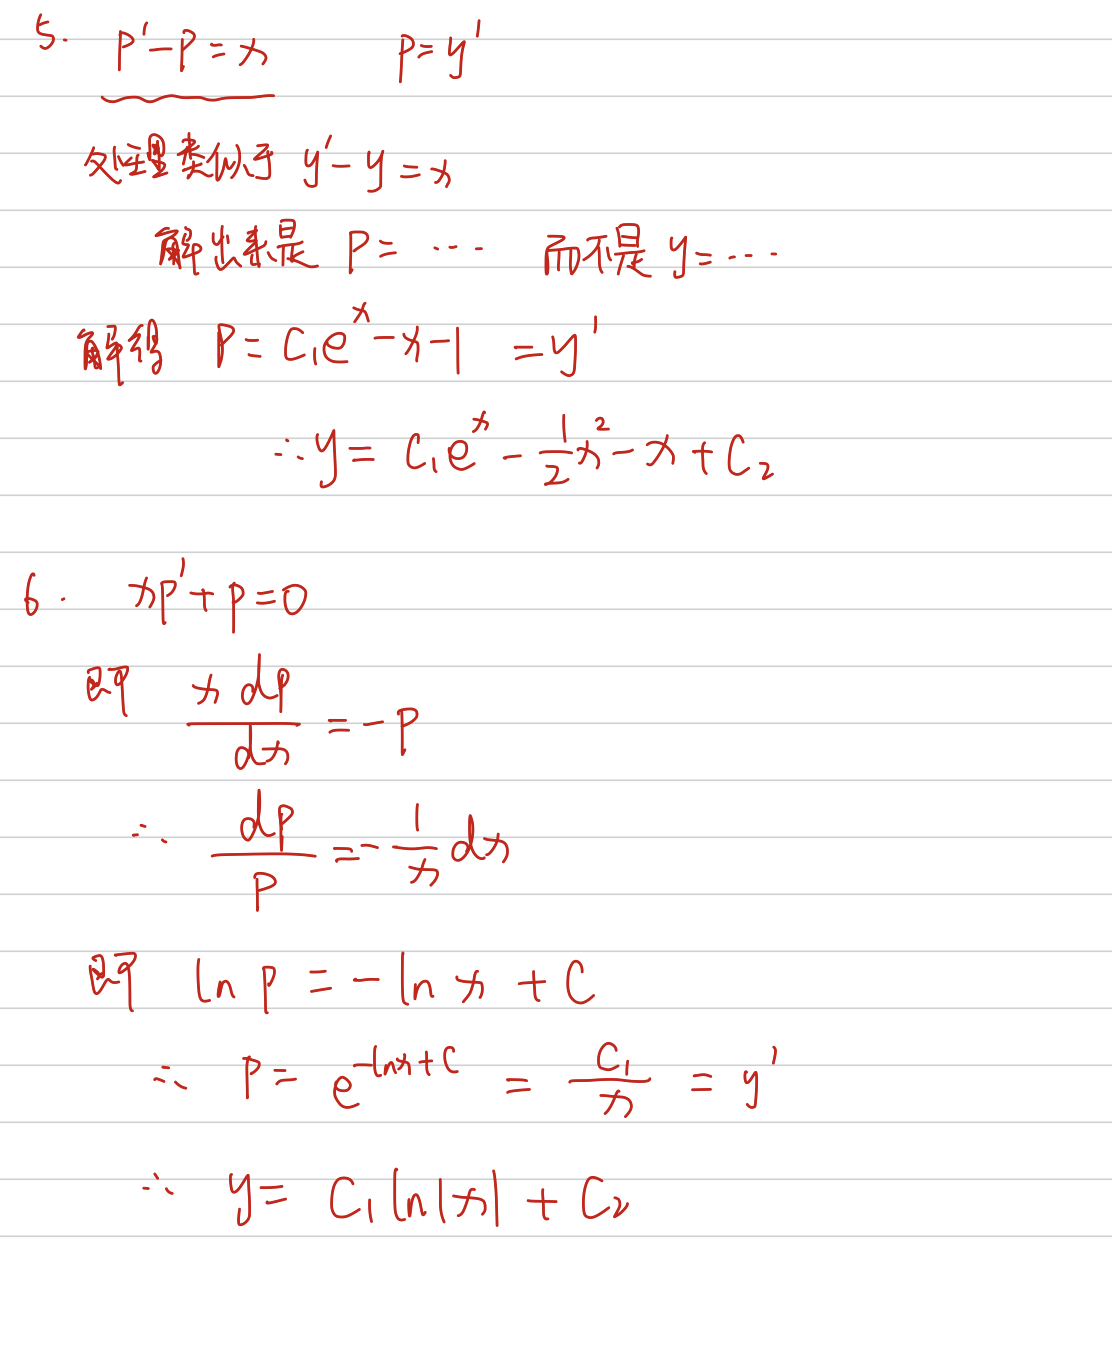 5. p'-p=x p=y'
处理类似于 y'-y=x
解出来是 p=… 而不是 y=…
解得 p=C₁eˣ-x-1 =y'
∴y= C₁eˣ-\frac{1}{2}x²-x+C₂
6. xp'+p=0
即 \frac{x dp}{dx}=-p
∴ \frac{dp}{p}=-\frac{1}{x}dx
即 ln p=-ln x+C
∴ p= e^{-lnx+C} = \frac{C₁}{x} = y'
∴ y= C₁ln|x|+C₂